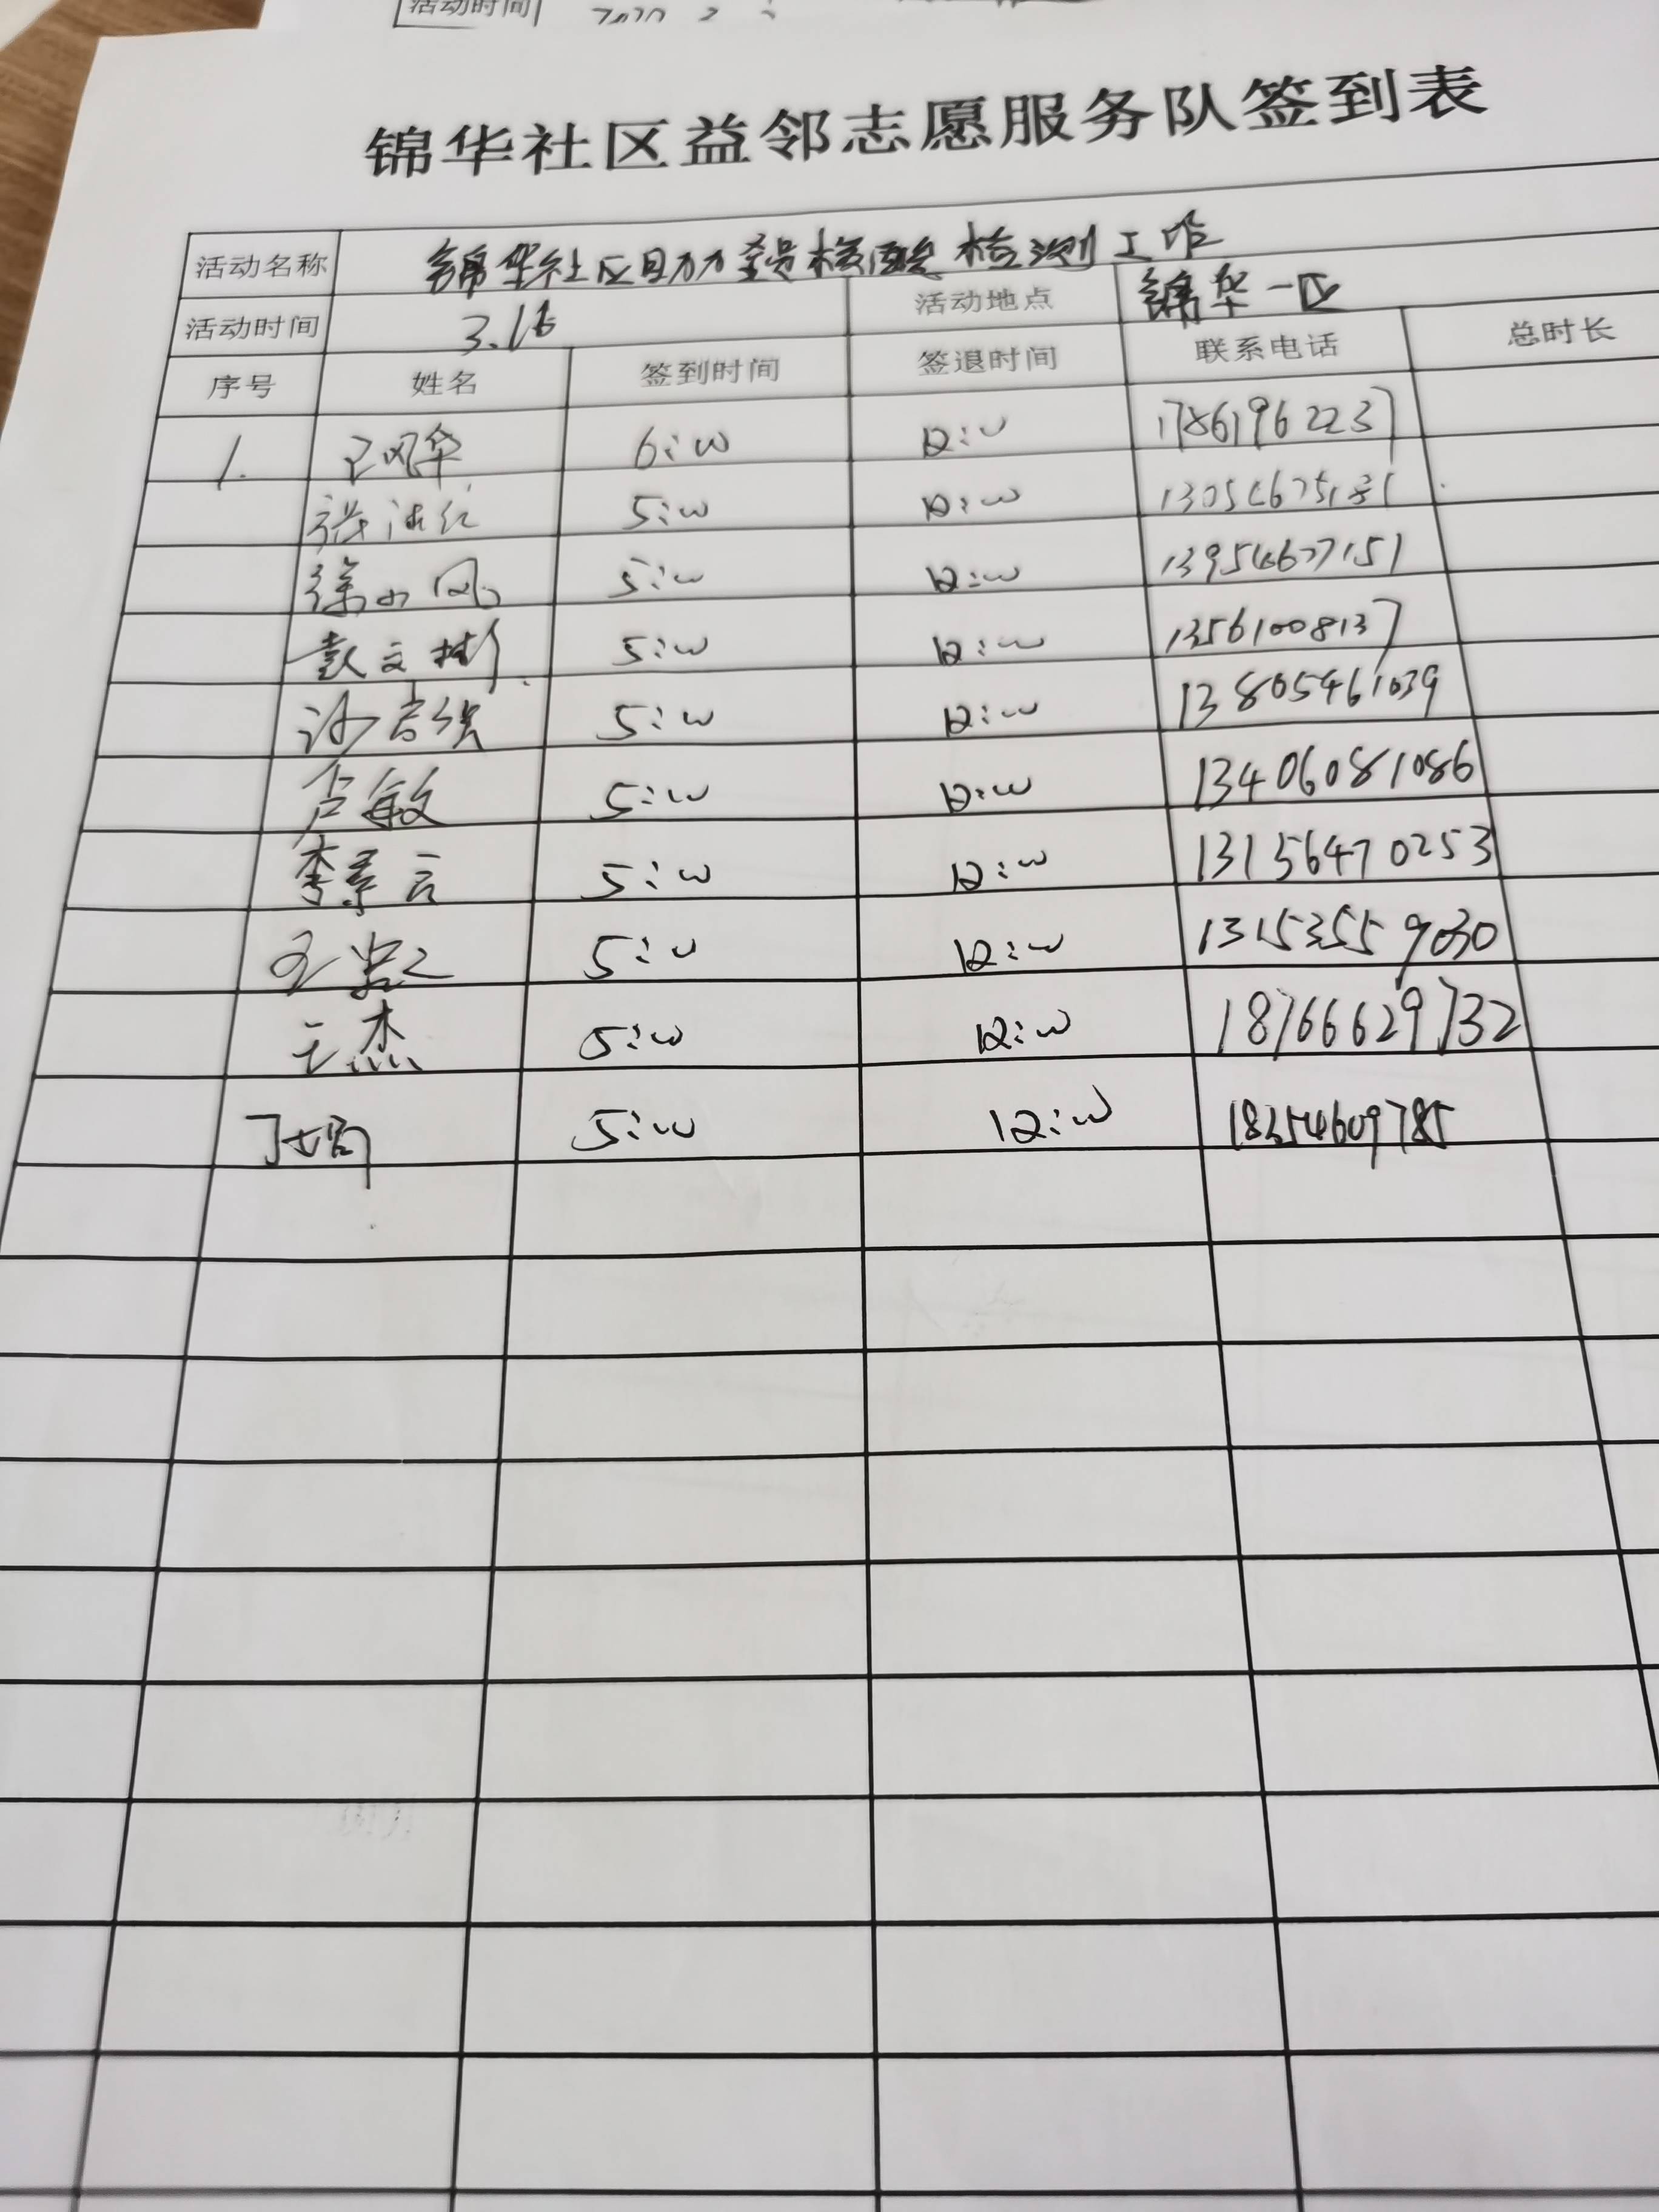 活动时间
锦华社区益邻志愿服务队签到表
活动名称 锦华社区助力全员核酸检测工作
活动时间 3.16 活动地点 锦华一区
序号 姓名 签到时间 签退时间 联系电话 总时长
1. 6:00 12:00 17861962237
5:00 12:00
5:00 12:00 13954677151
5:00 12:00 13561008137
5:00 12:00 13805461039
卢敏 5:00 12:00 13406081086
李素云 5:00 12:00 13156470253
5:00 12:00 13153559030
王杰 5:00 12:00 18766629732
5:00 12:00 18354609785